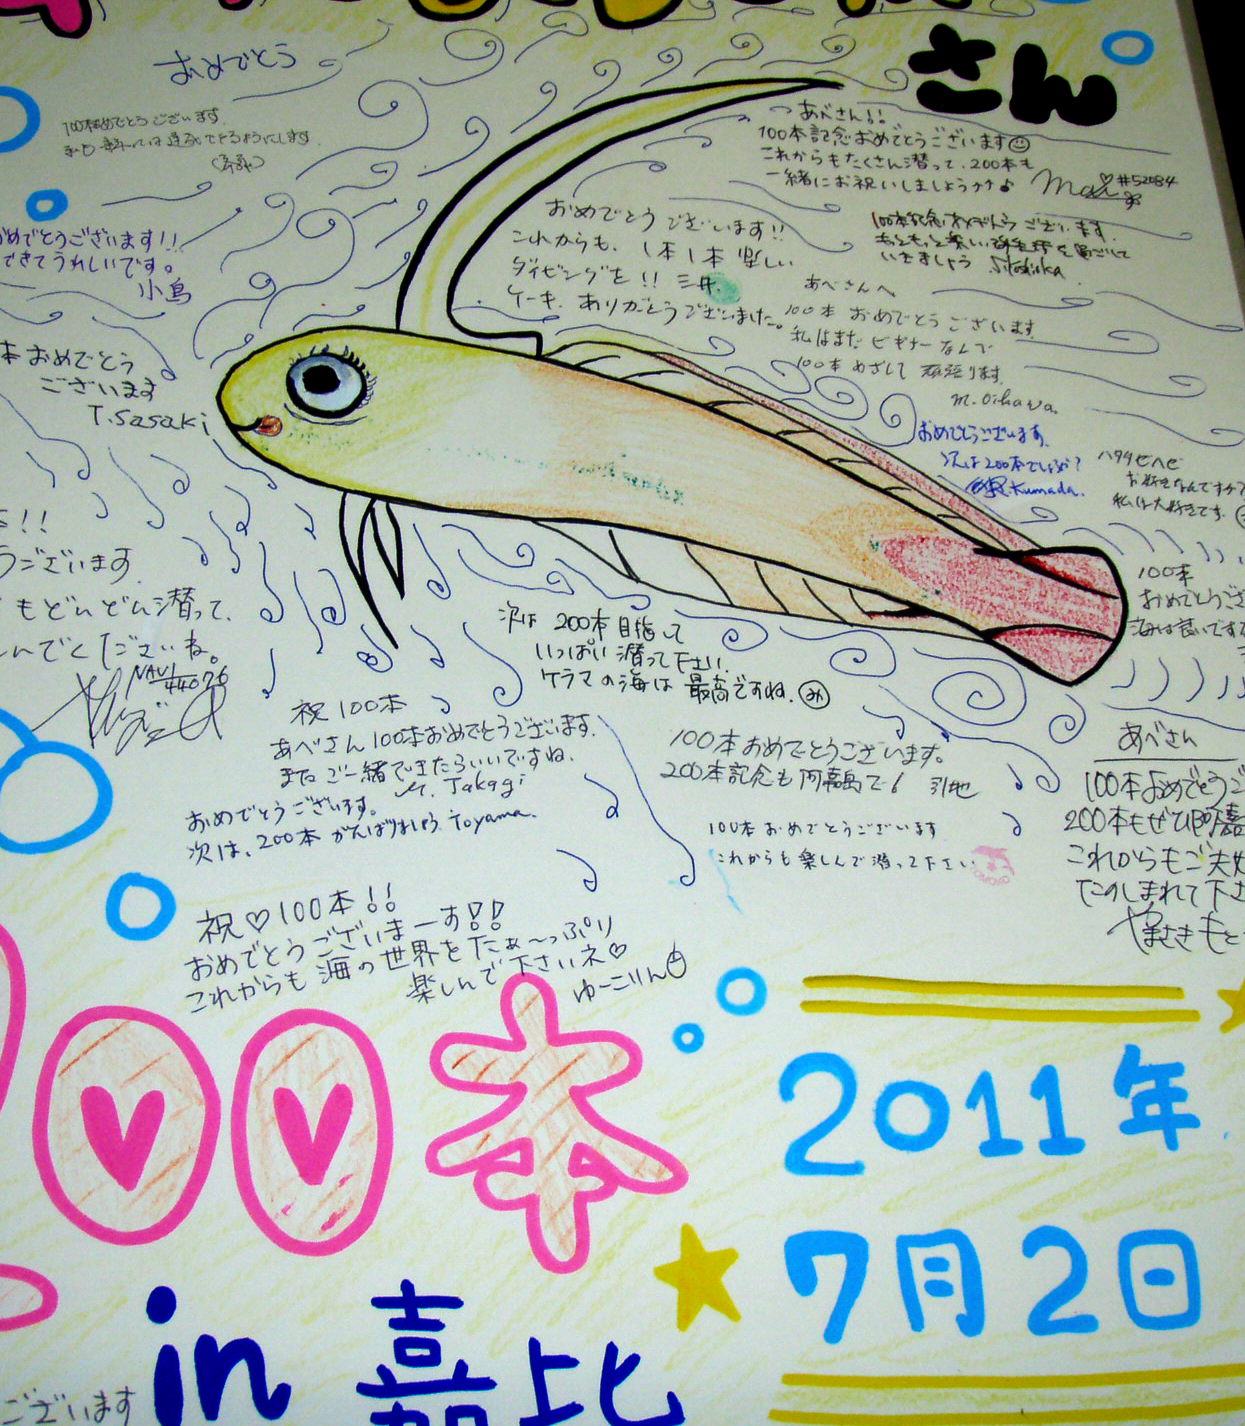 さん
おめでとう
100本おめでとうございます
つあべさん!!
100本記念おめでとうございます
これからもたくさん潜って、200本も
一緒にお祝いしましょう
#52084
おめでとうございます!!
できてうれしいです。
小島
おめでとうございます!!
これからも、1本1本楽しい
ダイビングを!! 三井
ケーキ、ありがとうございました。
100本記念おめでとうございます
いきましょう
あべさんへ
100本おめでとうございます
私はまだビギナーなんで
100本めざして頑張ります。
M. Oikawa
本おめでとう
ございます
T.Sasaki
おめでとうございます。
次は200本でしょうか?
Kumada.
ハタタテハゼ
お好きなんですか?
私は大好きです。
100本
おめでとうござ
!!
うございます
もどんどん潜って、
んでくださいね。
NAUI
44026
次は200本目指して
いっぱい潜って下さい。
ケラマの海は最高ですね。み
祝100本
あべさん100本おめでとうございます。
またご一緒できたらいいですね。
M. Takagi
おめでとうございます。
次は、200本がんばりましょう Toyama.
100本おめでとうございます。
200本記念も阿嘉島で! 引地
100本おめでとうございます
これからも楽しんで潜って下さい
あべさん
100本おめでとうご
200本もぜひ阿嘉
これからもご夫妻
たのしまれて下さ
やまさきもと
祝♡100本!!
おめでとうございまーす!!
これからも海の世界をたぁ〜っぷり
楽しんで下さいネ♡
ゆーこりん
00本
2011年
7月2日
in 嘉比
ございます